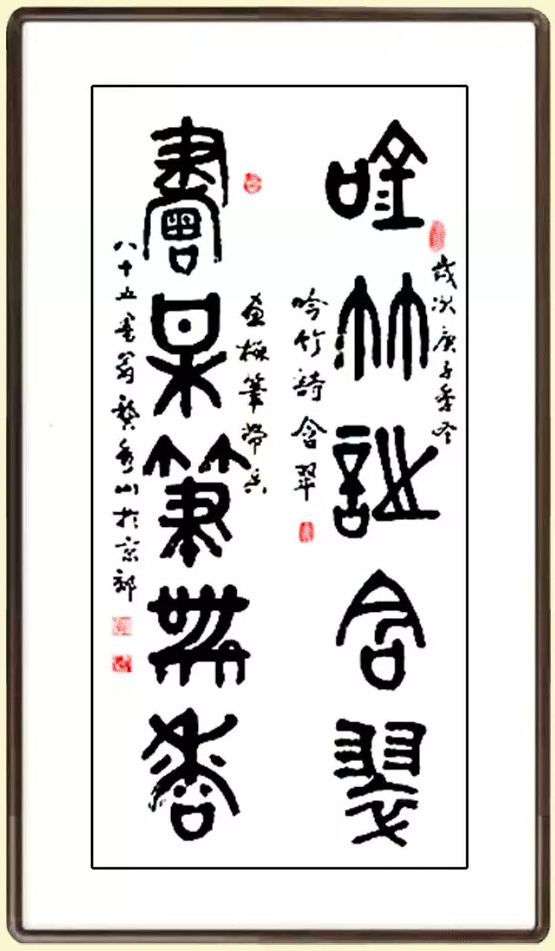 歲次庚子季冬
唫竹詩含翠
吟竹詩含翠
畫梅筆帶香
畫某筆帶香
八十五翁龔山於京郊